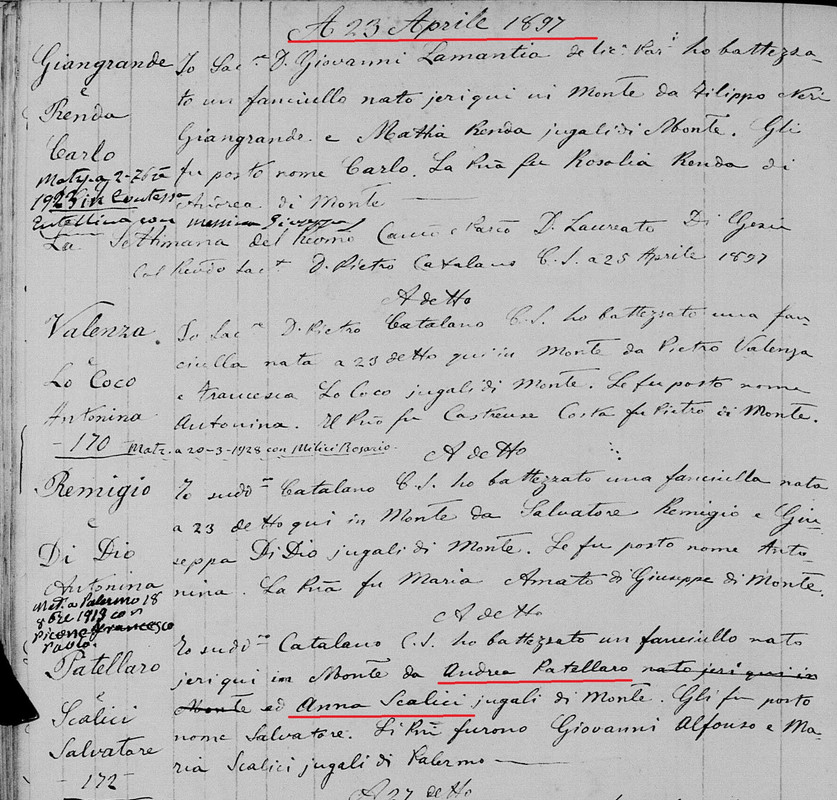 A 23 Aprile 1897
Giangrande
e
Renda
Carlo
Io Sac.ne D. Giovanni Lamantia de lic.a Par.i ho battezza-
to un fanciullo nato jeri qui in Monte da Filippo Neri
Giangrande e Mattia Renda jugali di Monte. Gli
fu posto nome Carlo. La Pna fu Rosalia Renda di
Andrea di Monte
1923 in Contessa
Entellina con Messina Giuseppa
La Settimana del Revmo Can.co e Parco D. Laureato Di Gesù
Col Revdo Sac.te D. Pietro Catalano C. S. a 25 Aprile 1897
A detto
Valenza
e
Lo Coco
Antonina
- 170
Io Sac.ne D. Pietro Catalano C. S. ho battezzato una fan-
ciulla nata a 23 detto qui in Monte da Pietro Valenza
e Francesca Lo Coco jugali di Monte. Le fu posto nome
Antonina. Il Pno fu Castrense Costa fu Pietro di Monte.
Matr. a 20-3-1928 con Milici Rosario.
A detto
Remigio
e
Di Dio
Antonina
Io sudd.no Catalano C. S. ho battezzato una fanciulla nata
a 23 detto qui in Monte da Salvatore Remigio e Giu-
seppa Di Dio jugali di Monte. Le fu posto nome Anto-
nina. La Pna fu Maria Amato di Giuseppe di Monte.
Mat. a Palermo 18
8bre 1919 con
Picone Francesco
Paolo.
A detto
Patellaro
e
Scalici
Salvatore
- 172 -
Io sudd.no Catalano C. S. ho battezzato un fanciullo nato
jeri qui in Monte da Andrea Patellaro nato jeri qui in
Monte ed Anna Scalici jugali di Monte. Gli fu posto
nome Salvatore. Li Pni furono Giovanni Alfonso e Ma-
ria Scalici jugali di Palermo
A 27 detto